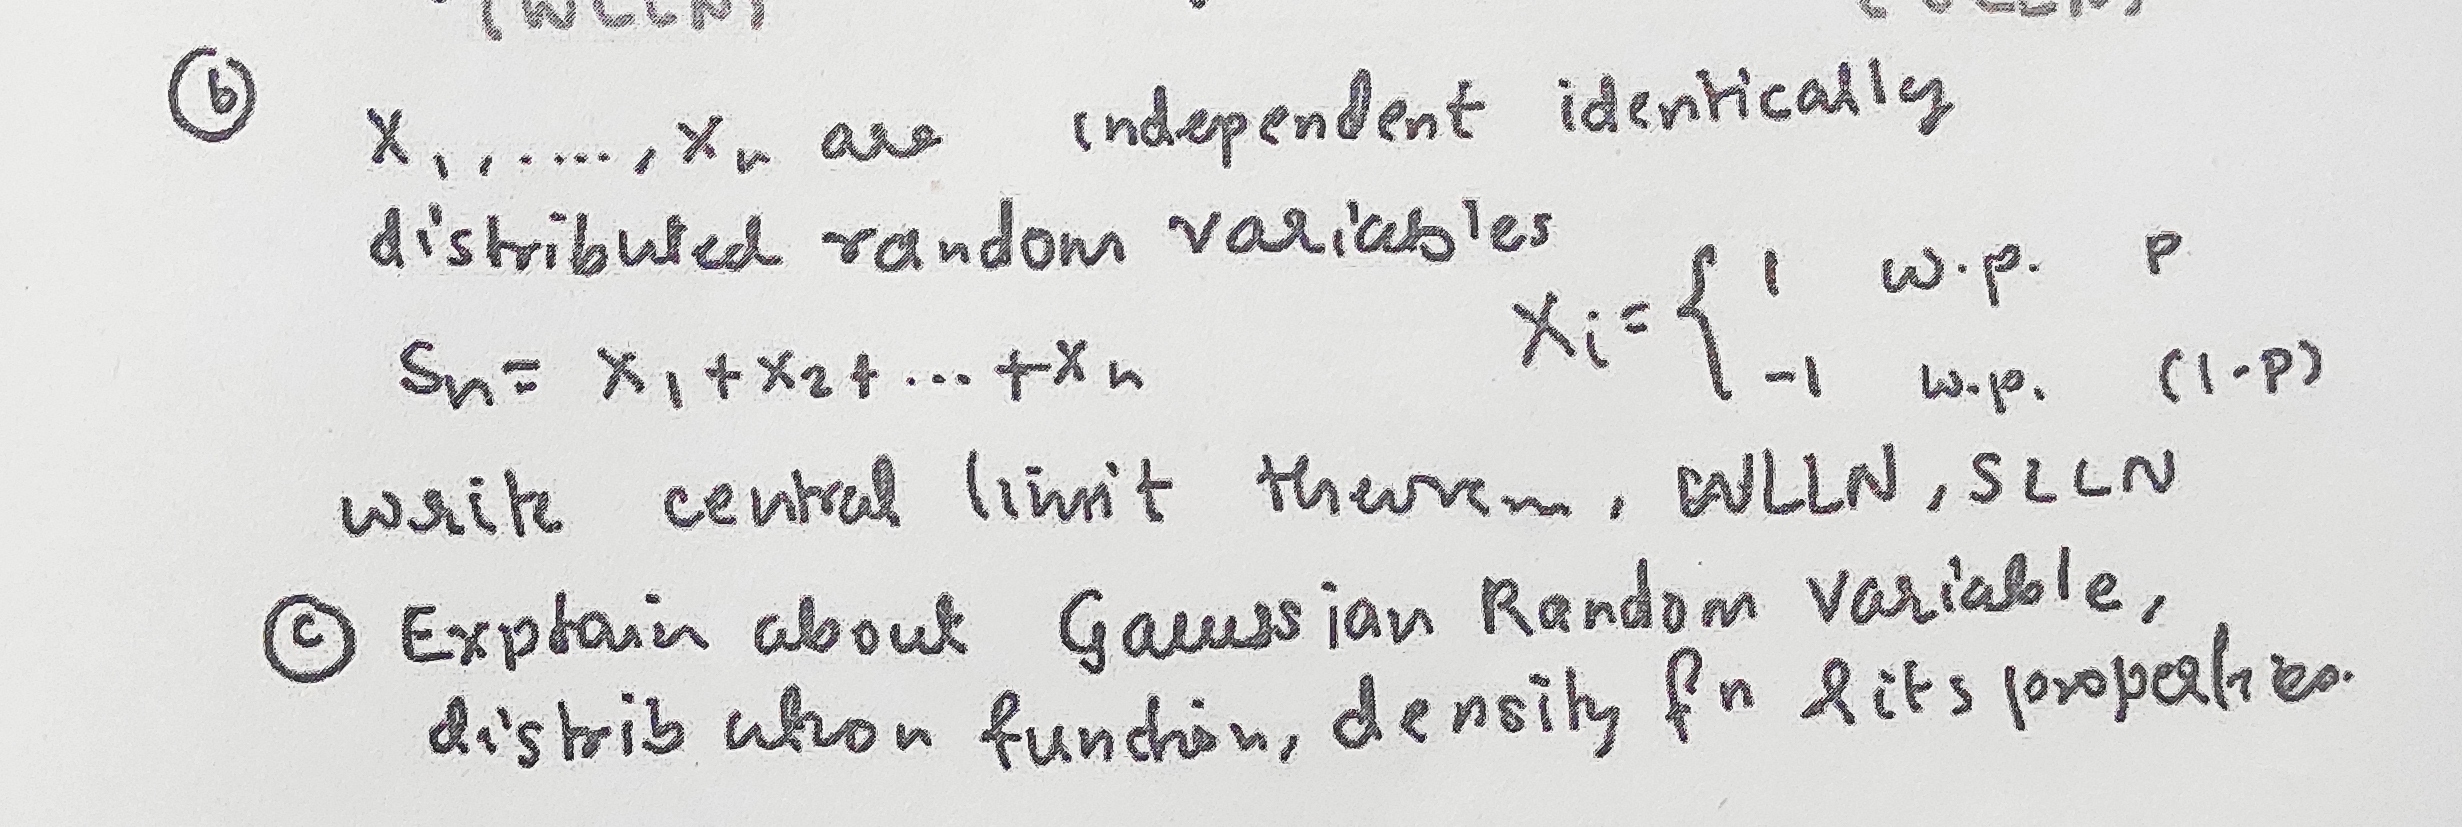 (WLLN)
ⓑ X₁, ...., Xₙ are independent identically
distributed random variables
Xᵢ = { 1 w.p. p
Sₙ = X₁+X₂+...+Xₙ
-1 w.p. (1-p)
write central limit theorem, WLLN, SLLN
ⓒ Explain about Gaussian Random Variable,
distribution function, density fn & its properties.